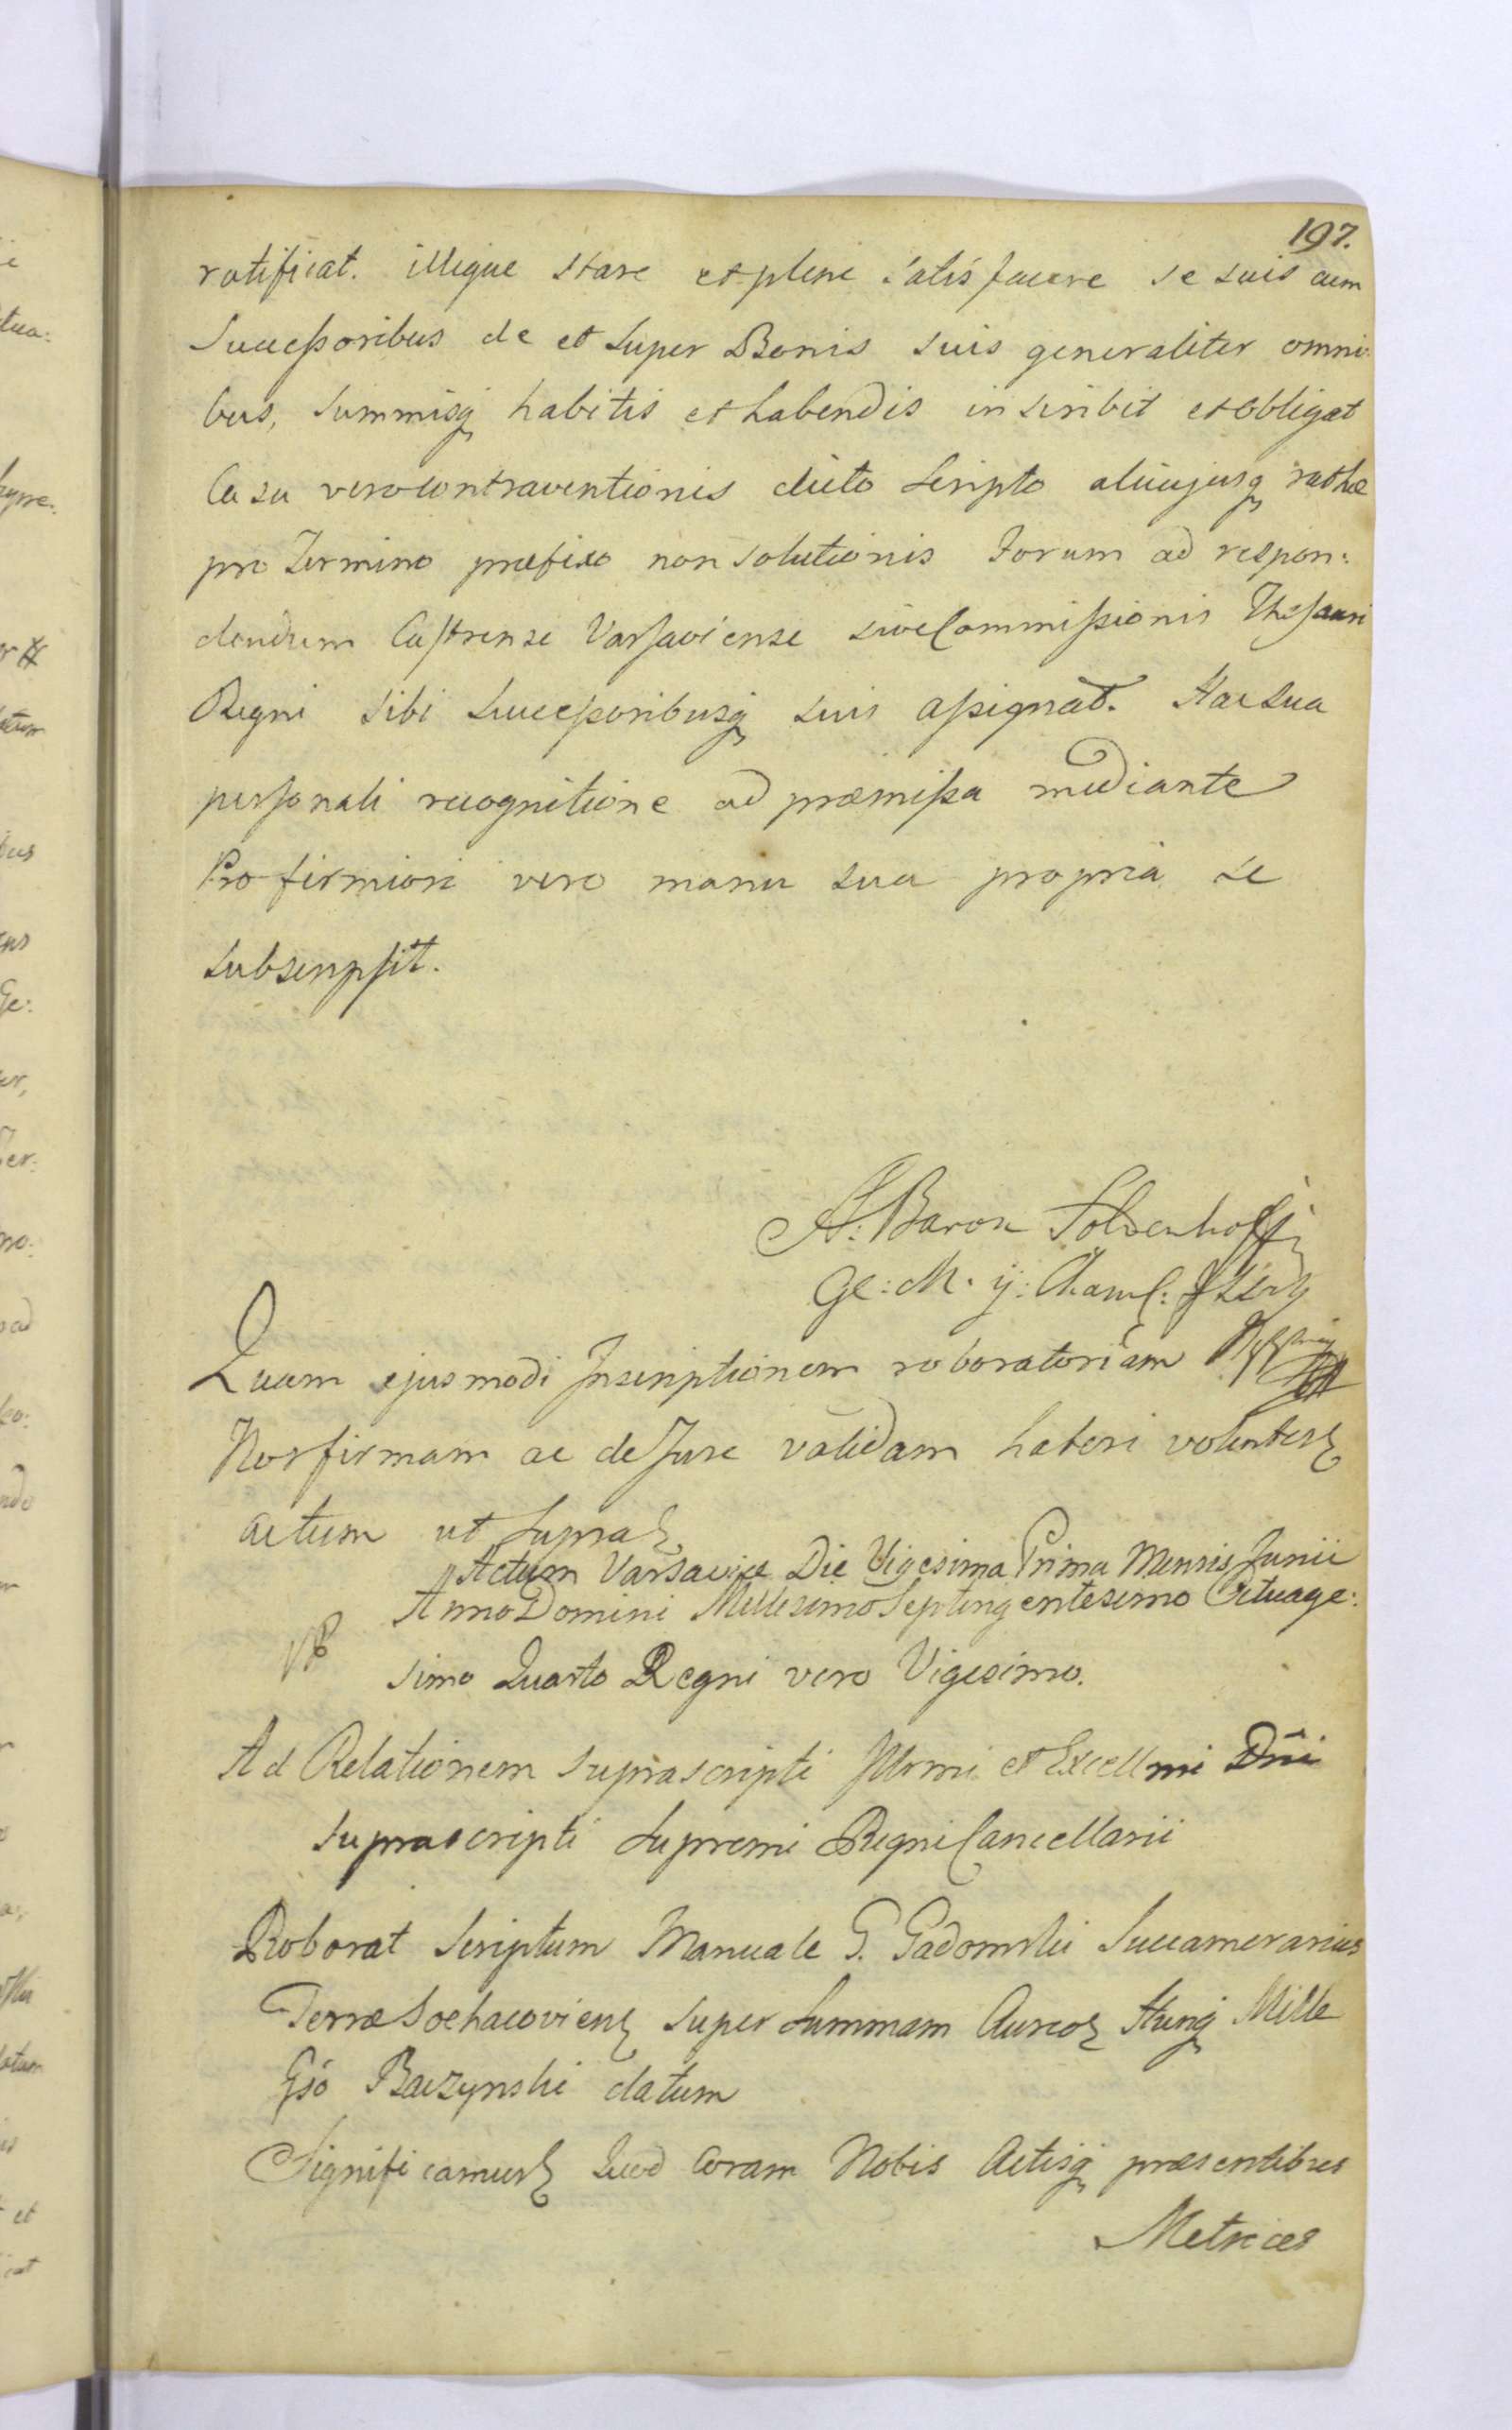 197.
ratificat. illique stare et plene satisfacere se suis cum
Successoribus de et super Bonis suis generaliter omni:
bus, summisq habitis et habendis inscribit et obligat
Casu vero contraventionis dicto Scripto alicujusq rathæ
pro Termino præfixo non solutionis Forum ad respon:
dendum Castrense Varsaviense sive Commissionis Thesauri
Regni sibi Successoribusq suis assignat. Hac sua
personali recognitione ad præmissa mediante
Pro firmiori vero manu sua propria se
subscripsit.
A: Baron
Ge: M.
Quam ejusmodi Inscriptionem roboratoriam
Nos firmam ac de Jure validam haberi volentes
actum ut supra
Actum Varsaviæ Die Vigesima Prima Mensis Junii
Anno Domini Millesimo Septingentesimo Octuage:
simo Quarto Regni vero Vigesimo.
Ad Relationem suprascripti Illrmi et Excellmi Dni
suprascripti Supremi Regni Cancellarii
Roborat Scriptum Manuale G. Gadomski Succamerarius
Terræ Sochacoviens super Summam Aureos Hung Mille
Gso Baczynski datum
Significamus Quod Coram Nobis Actisq præsentibus
Metrices